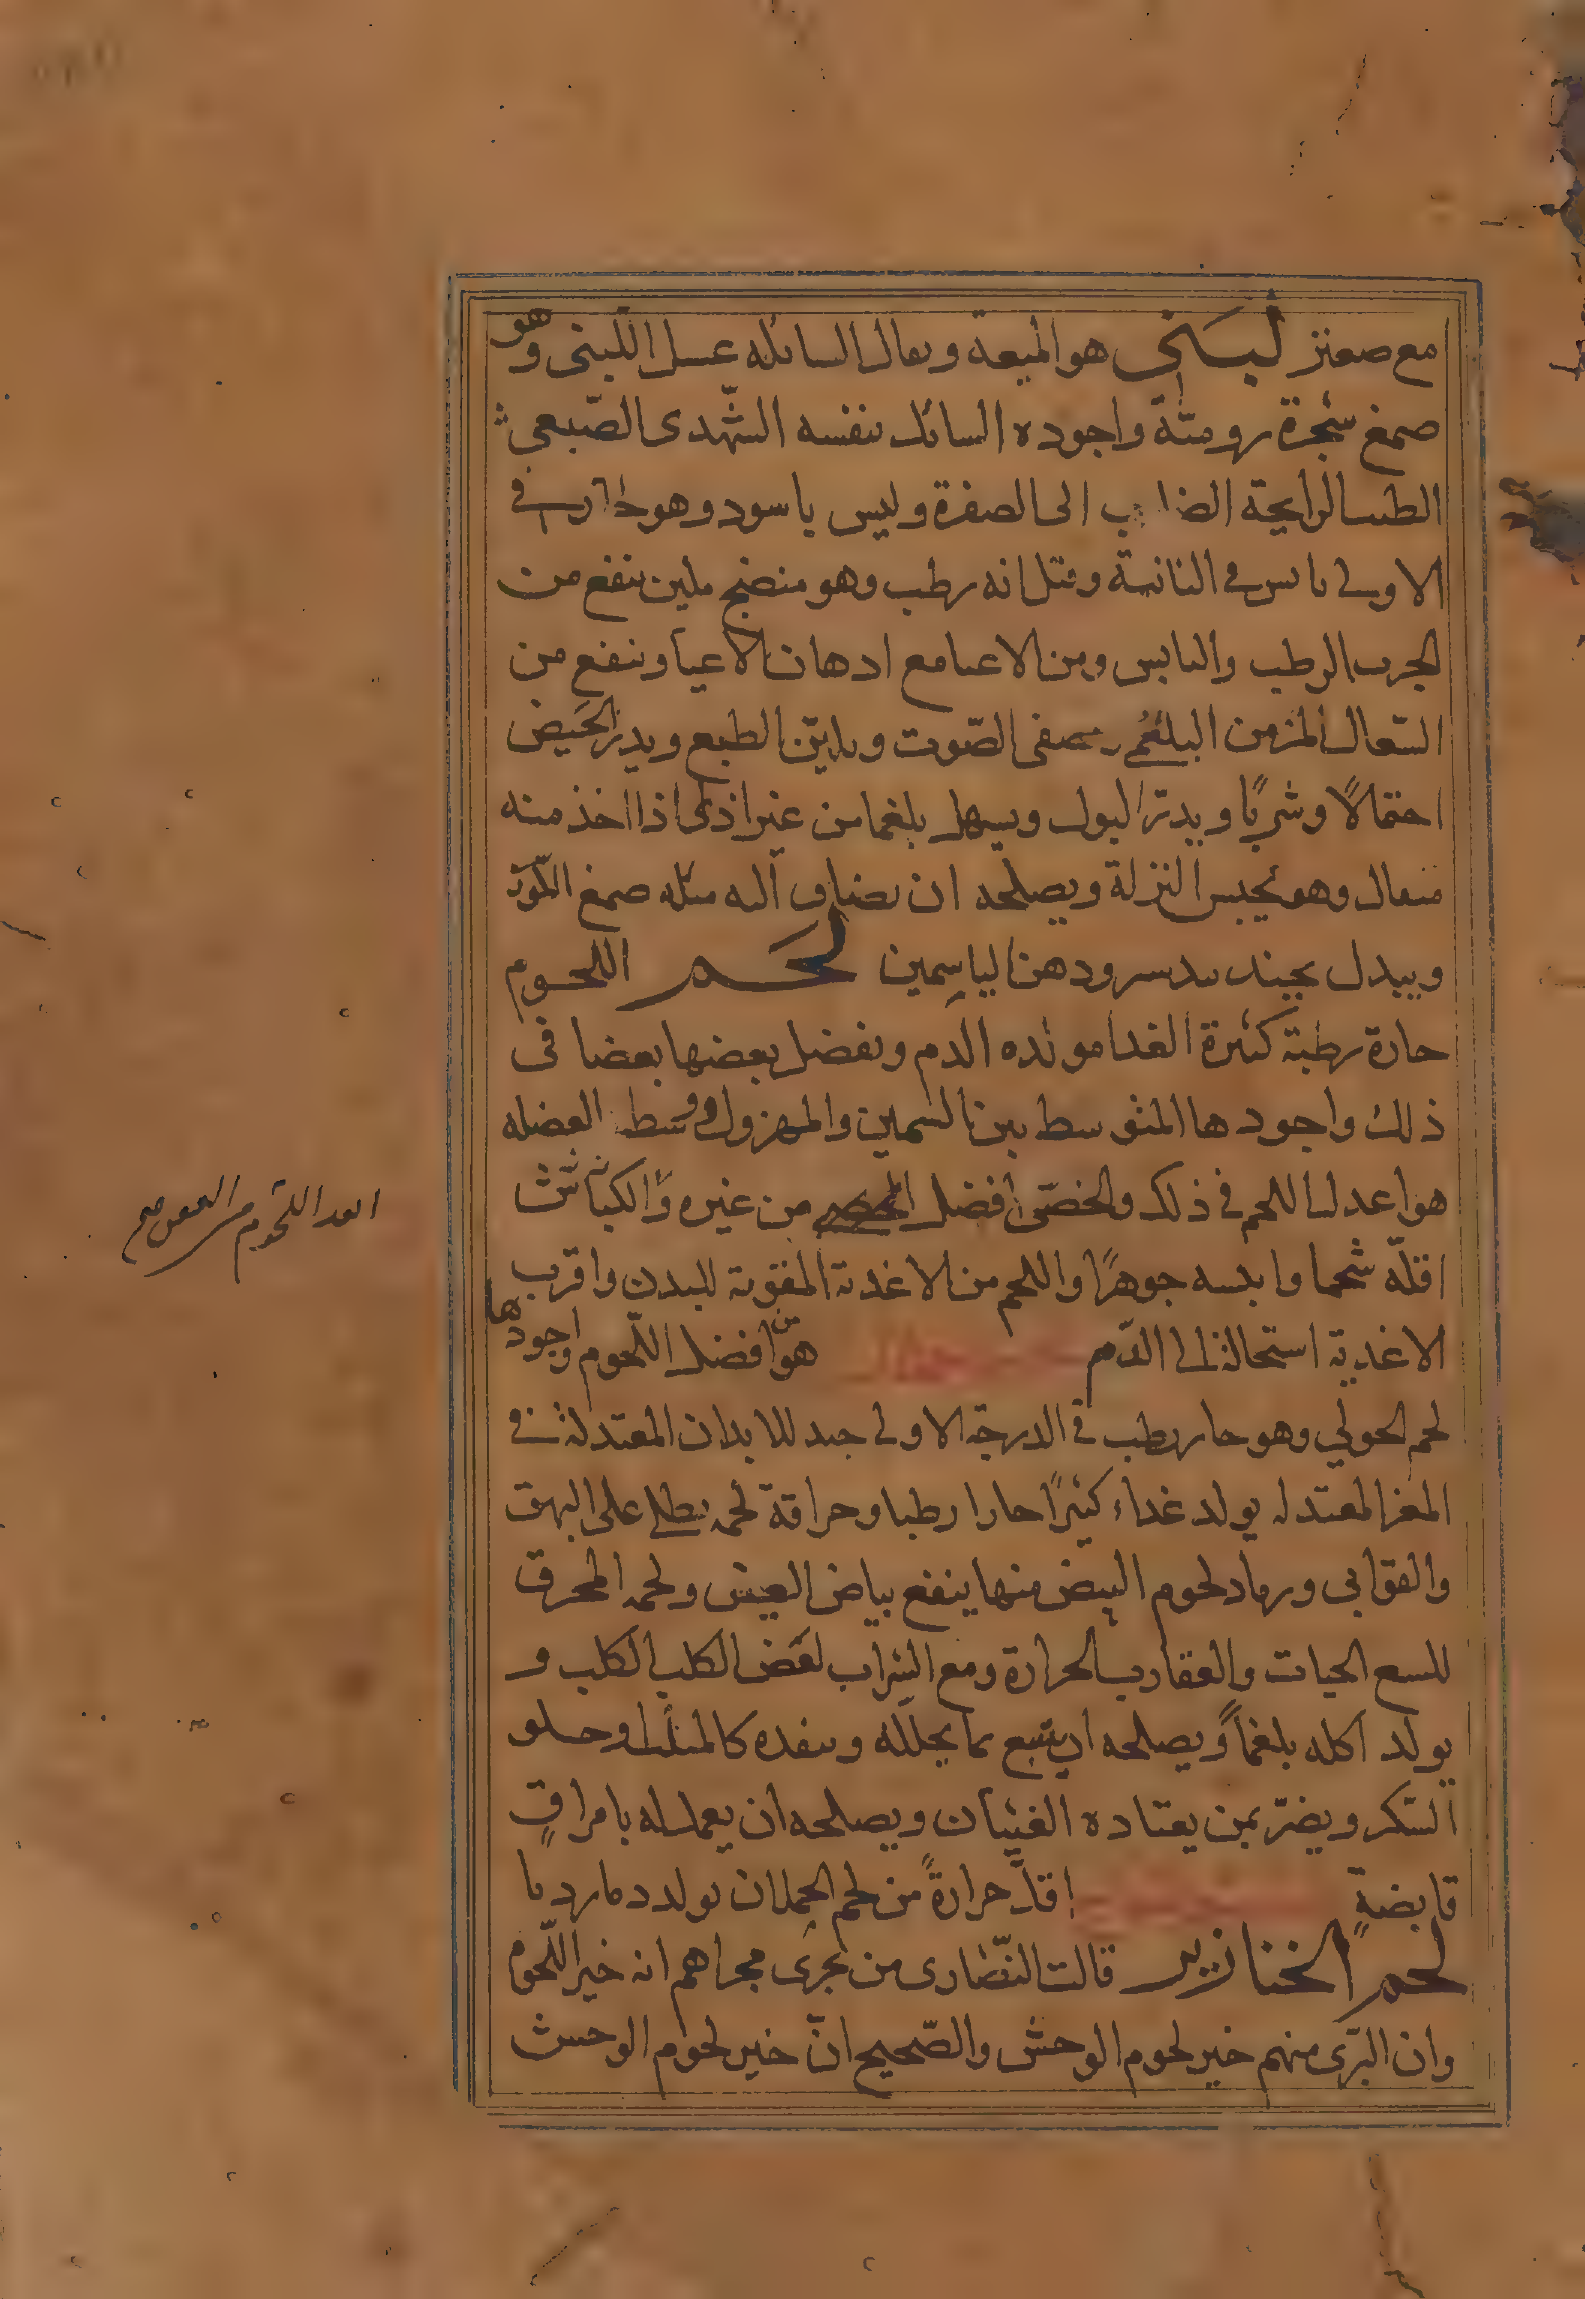 مع صعتر لبنى هو الميعة ويقال السائله عسل اللبنى وهو
صمغ شجرة روميّة واجوده السائل بنفسه الشّهدى الصّمغى
الطيب الرايحة الضارب الى الصفرة وليس باسود وهو حار فى
الاولى يابس فى الثانية وقيل انه رطب وهو منضج ملين ينفع من
الجرب الرطب واليابس ومن الاعيا مع ادهان الاعيا وينفع من
السّعال المزمن البلغمى ويصفى الصّوت ويليّن الطبع ويدر الحيض
احتمالًا وشربًا ويدرّ البول ويسهل بلغما من غير اذى اذا اخذ منه
مثقال وهو يحبس النزلة ويصلحه ان يضاف اليه مثله صمغ اللّوز
ويبدل بجندبيدستر ودهن الياسِمين لحم اللحوم
حارة رطبة كثيرة الغدا مولده الدم وبفضل بعضها بعضا فى
ذلك واجودها المتوسط بين السّمين والمهزول ووسط العضله
هو اعدل اللحم فى ذلك والخصّى افضل من غيره والكباش
اقلّه شحما وايبسه جوهرًا واللحم من الاغدية المقوية للبدن واقرب
الاغدية استحالة الى الدّم هو من افضل اللّحوم واجودها
لحم الحولي وهو حار رطب فى الدرجة الاولى جيد للابدان المعتدلة فى
المغز المعتدله يولد غداء كثيرًا حارا رطبا وحراقة لحمه يطلى على البهق
والقوابى ورماد لحوم البيض منها ينفع بياض العين ولحمه المحرق
للسع الحيات والعقارب الحرارة ومع الشراب لعَض الكلب الكلب و
يولد اكله بلغمًا ويصلحه ان يتبع بما يحلله وينفده كالمثلث او حلو
السّكر ويضرّ بمن يعتاده الغثيان ويصلحه ان يعمل له بامراقٍ
قابضةٍ اقلّ حرارةً من لحم الحملان يولد دما رديا
لحم الخنازير قالت النّصارى من يجرى مجراهم انه خير اللّحوم
وان البرّى منهم خير لحوم الوحش والصّحيح انّ خير لحوم الوحش